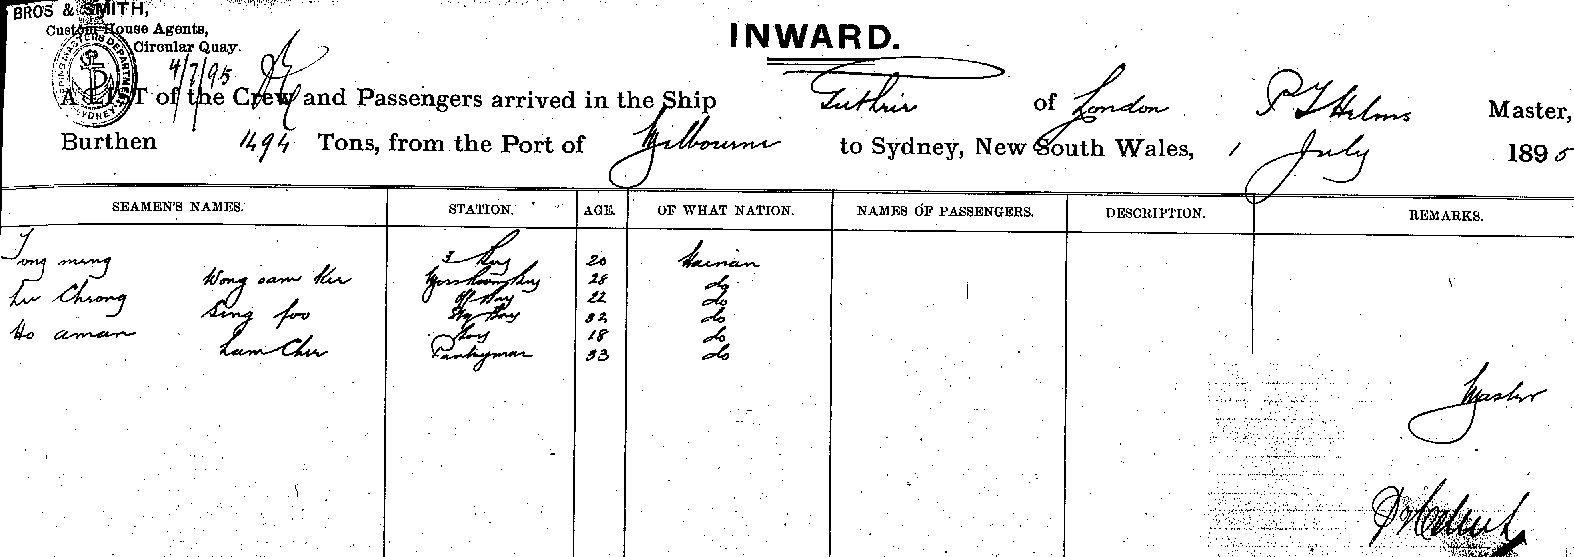 BROS & SMITH,
Custom House Agents,
Circular Quay.
4/7/95
INWARD.
A LIST of the Crew and Passengers arrived in the Ship Guthrie of London P T Helms Master,
Burthen 1494 Tons, from the Port of Melbourne to Sydney, New South Wales, 1 July 1895
SEAMEN'S NAMES. STATION. AGE. OF WHAT NATION. NAMES OF PASSENGERS. DESCRIPTION. REMARKS.
Tong ming 3 Boy 20 Hainan
Wong sam Kee 28 do
Lu Cheong 22 do
Sing foo 32 do
Ho aman Boy 18 do
Lam Chee Pantryman 33 do
Master